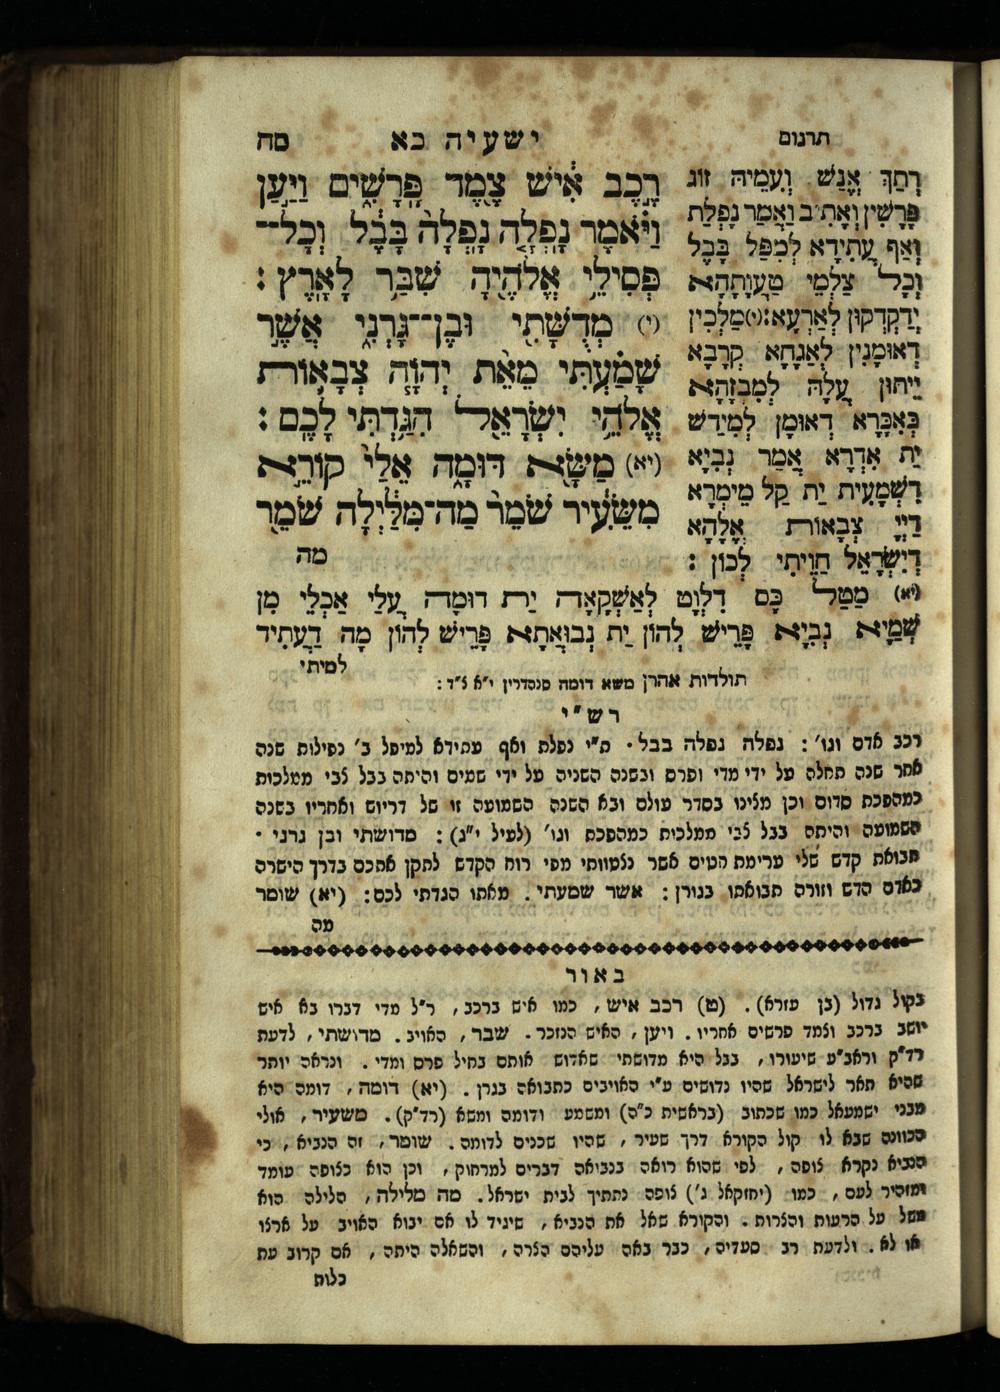 תרגום
ישעיה כא
סח
רֶ֤כֶב אִישׁ֙ צֶ֣מֶד פָּֽרָשִׁ֔ים וַיַּ֣עַן
וַיֹּ֗אמֶר נָפְלָ֤ה נָֽפְלָה֙ בָּבֶ֔ל וְכָל־
פְּסִילֵ֥י אֱלֹהֶ֖יהָ שִׁבַּ֥ר לָאָֽרֶץ :
(י) מְדֻשָׁתִ֖י וּבֶן־גָּרְנִ֑י אֲשֶׁ֣ר
שָׁמַ֗עְתִּי מֵאֵ֨ת יְהוָֹ֧ה צְבָא֛וֹת
אֱלֹהֵ֥י יִשְׂרָאֵ֖ל הִגַּ֥דְתִּי לָכֶֽם :
(יא) מַשָּׂ֖א דּוּמָ֑ה אֵלַי֙ קוֹרֵ֣א
מִשֵּׂעִ֔יר שֹׁמֵר֙ מַה־מִּלַּ֔יְלָה שֹׁמֵ֖ר
מה
רְתַךְ אֱנָשׁ וְעִמֵיהּ זוֹג
פָּרָשִׁין וְאָתִיב וַאֲמַר נְפָלַת
וְאַף עֲתִידָא לְמִפַּל בָּבֶל
וְכָל צַלְמֵי טַעֲוָתָהָא
יְדַקְדְקוּן לְאַרְעָא: (י) מַלְכִין
דְאוּמָנִין לְאַגָחָא קְרָבָא
יֵיתוּן עֲלָהּ לְמִבְזָהָא
כְּאִכָּרָא דְאוּמָן לְמֵידַשׁ
יַת אִדְרָא אֲמַר נְבִיָא
דִשְׁמָעִית יַת קַל מֵימְרָא
דַיְיָ צְבָאוֹת אֱלָהָא
דְיִשְׂרָאֵל חַוֵיתִי לְכוֹן :
(יא) מַטַל כָּם דִלְוָט לְאַשְׁקָאָה יַת דוּמָה עֲלַי אַכְלֵי מִן
שְׁמַיָא נְבִיָא פָּרֵישׁ לְהוֹן יַת נְבוּאֲתָא פָּרֵישׁ לְהוֹן מָה דַעֲתִיד
למיתי
תולדות אהרן משא דומה סנהדרין י״א צ״ד :
רש״י
רכב אדם וגו' : נפלה נפלה בבל . ת״י נפלת ואף עתידא למיפל ב' נפילות שנה
אחר שנה תחלה על ידי מדי ופרס ובשנה השניה על ידי שמים והיתה בבל צבי ממלכות
כמהפכת סדום וכן מצינו בסדר עולם ובא השנה השמועה זו של דריוש ואחריו בשנה
השמועה והיתה בבל צבי ממלכות כמהפכת וגו' (לעיל י״ג) : מדושתי ובן גרני .
תבואת קדש שלי ערימת חטים אשר נצטוותי מפי רוח הקדש לתקן אתכם בדרך הישרה
כאדם הדש וזורה תבואתו בגורן : אשר שמעתי . מאתו הגדתי לכם : (יא) שומר
מה
באור
בקול גדול (בן עזרא) . (ט) רכב איש , כמו איש ברכב , ר״ל מדי דברו בא איש
יושב ברכב וצמד פרשים אחריו . ויען , האיש הנזכר . שבר , האויב . מדושתי , לדעת
רד״ק וראב״ע שיעורו , בבל היא מדושתי שאדוש אותם בחיל פרס ומדי . ונראה יותר
שהיא תאר לישראל שהיו נדושים ע״י האויבים כתבואה בגרן . (יא) דומה , דומה היא
מבני ישמעאל כמו שכתוב (בראשית כ״ה) ומשמע ודומה ומשא (רד״ק) . משעיר , אולי
הכוונה שבא לו קול הקורא דרך שעיר , שהיו שכנים לדומה . שומר , זה הנביא , כי
הנביא נקרא צופה , לפי שהוא רואה בנביאה דברים למרחוק , וכן הוא כצופה עומד
ומזהיר לעם , כמו (יחזקאל ג') צופה נתתיך לבית ישראל . מה מלילה , הלילה הוא
משל על הרעות והצרות . והקורא שאל את הנביא , שיגיד לו אם יבוא האויב על ארצו
או לא . ולדעת רב סעדיה , כבר באה עליהם הצרה , והשאלה היתה , אם קרוב עת
כלות